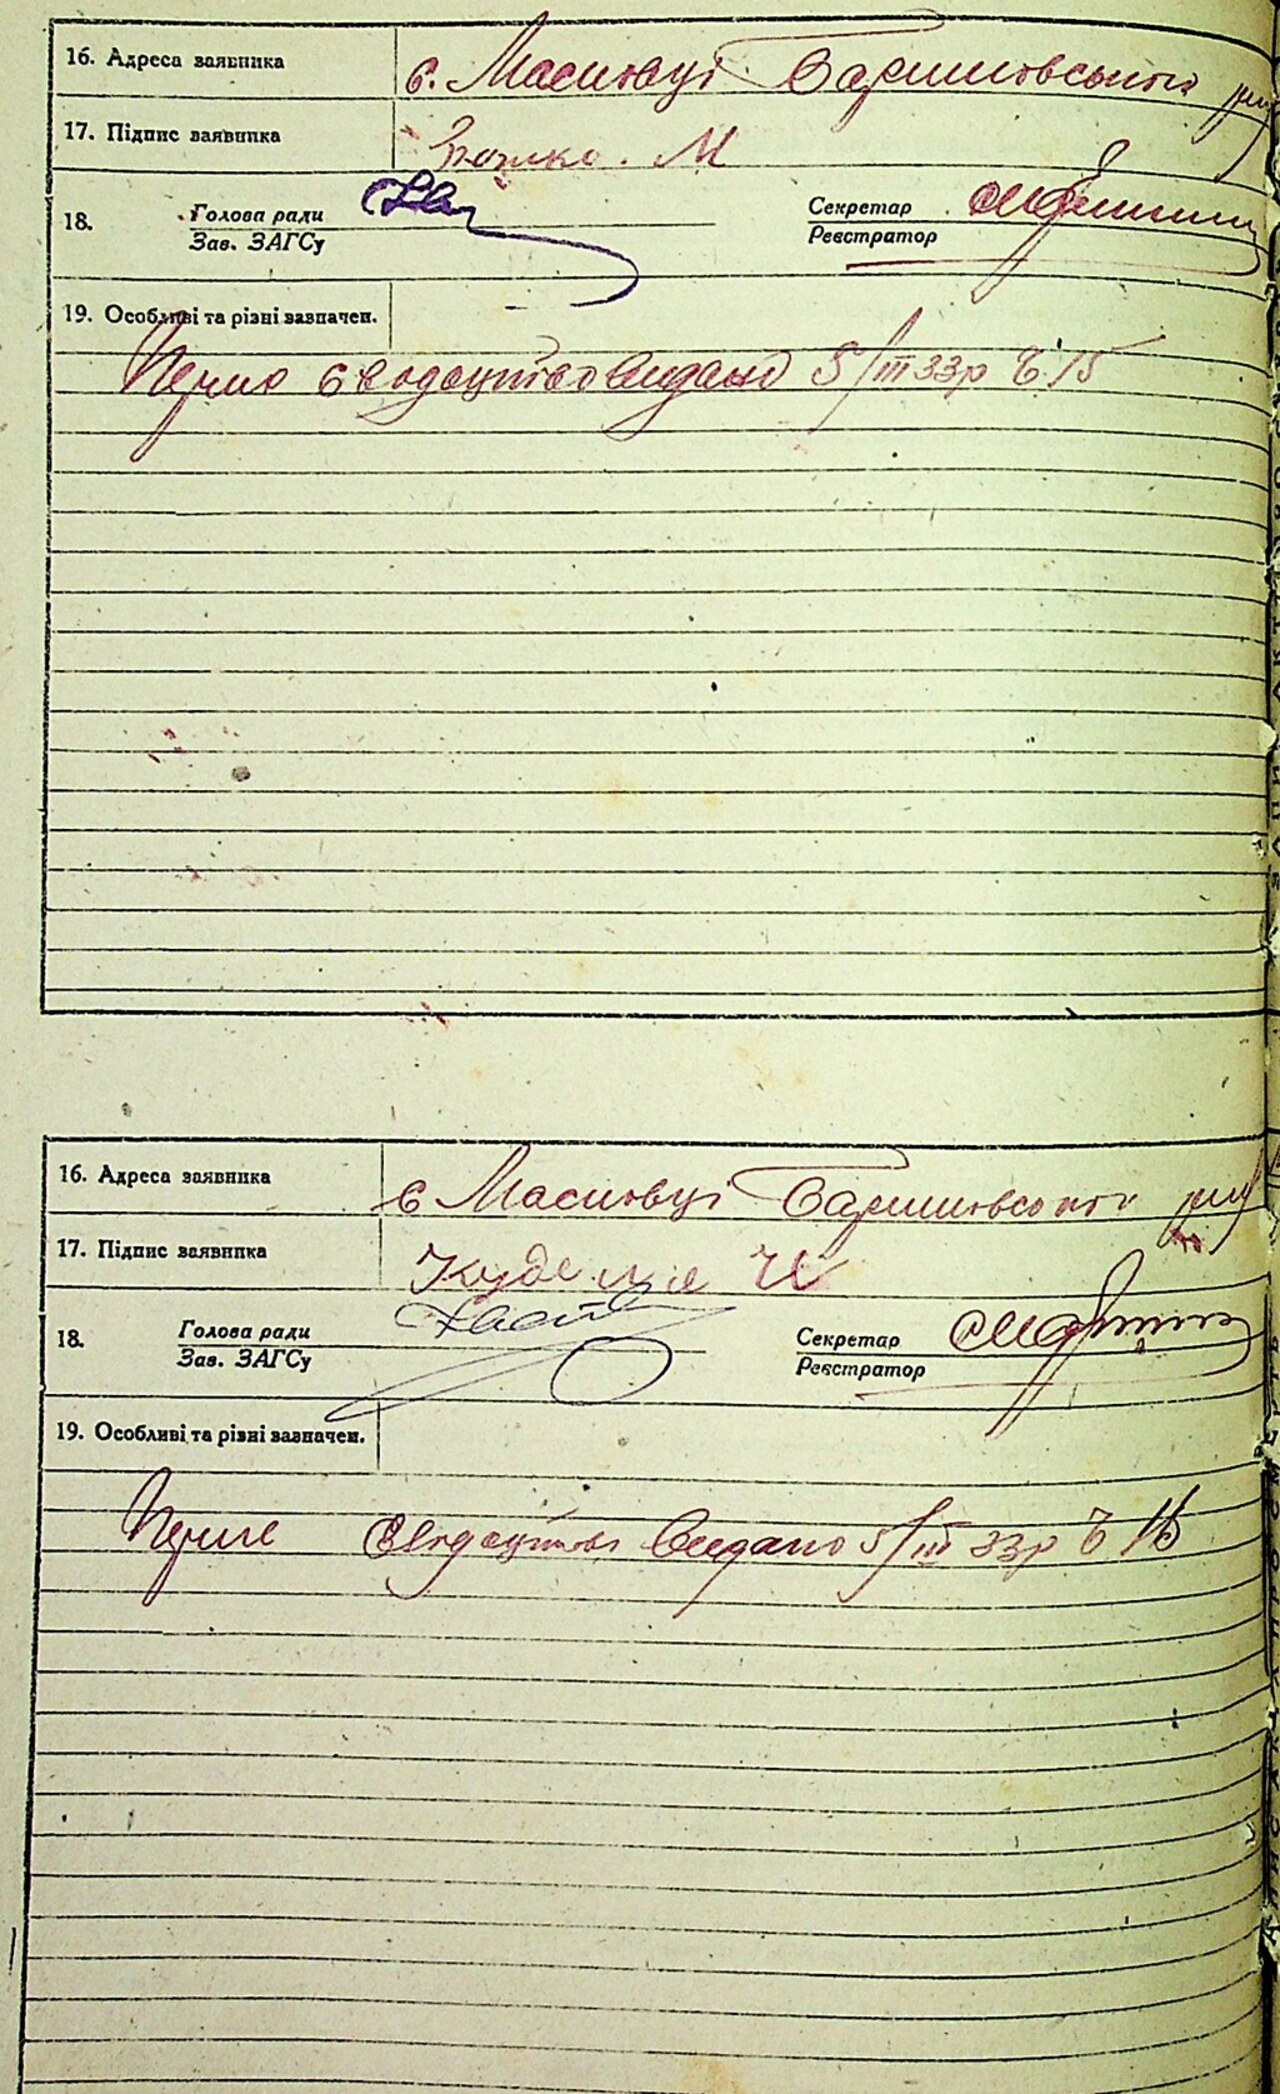 16. Адреса заявника с. Масківці Баришовського рну
17. Підпис заявника М
18. Голова ради Секретар
Зав. ЗАГСу Реєстратор
19. Особливі та різні зазначен.
Перше свидоцтво видано 5/III 33р Ч 15
16. Адреса заявника с Масківці Баришовського рну
17. Підпис заявника Куделя
18. Голова ради Секретар
Зав. ЗАГСу Реєстратор
19. Особливі та різні зазначен.
Перше свидоцтво видано 5/III 33р Ч 16